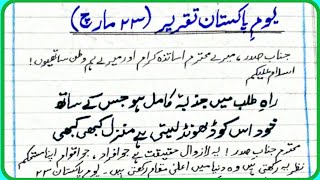 یومِ پاکستان تقریر (۲۳ مارچ)
جناب صدر، میرے محترم اساتذہ کرام اور میرے ہم وطن ساتھیوں!
اسلام علیکم
راہِ طلب میں جذبۂ کامل ہو جس کے ساتھ
خود اس کو ڈھونڈ لیتی ہے منزل کبھی کبھی
محترم جنابِ صدر! یہ لازوال حقیقت ہے جو افراد، جو اقوام اپنا مستحکم
نظریہ رکھتی ہیں وہ دنیا میں اعلیٰ مقام رکھتی ہیں۔ یومِ پاکستان ۲۳